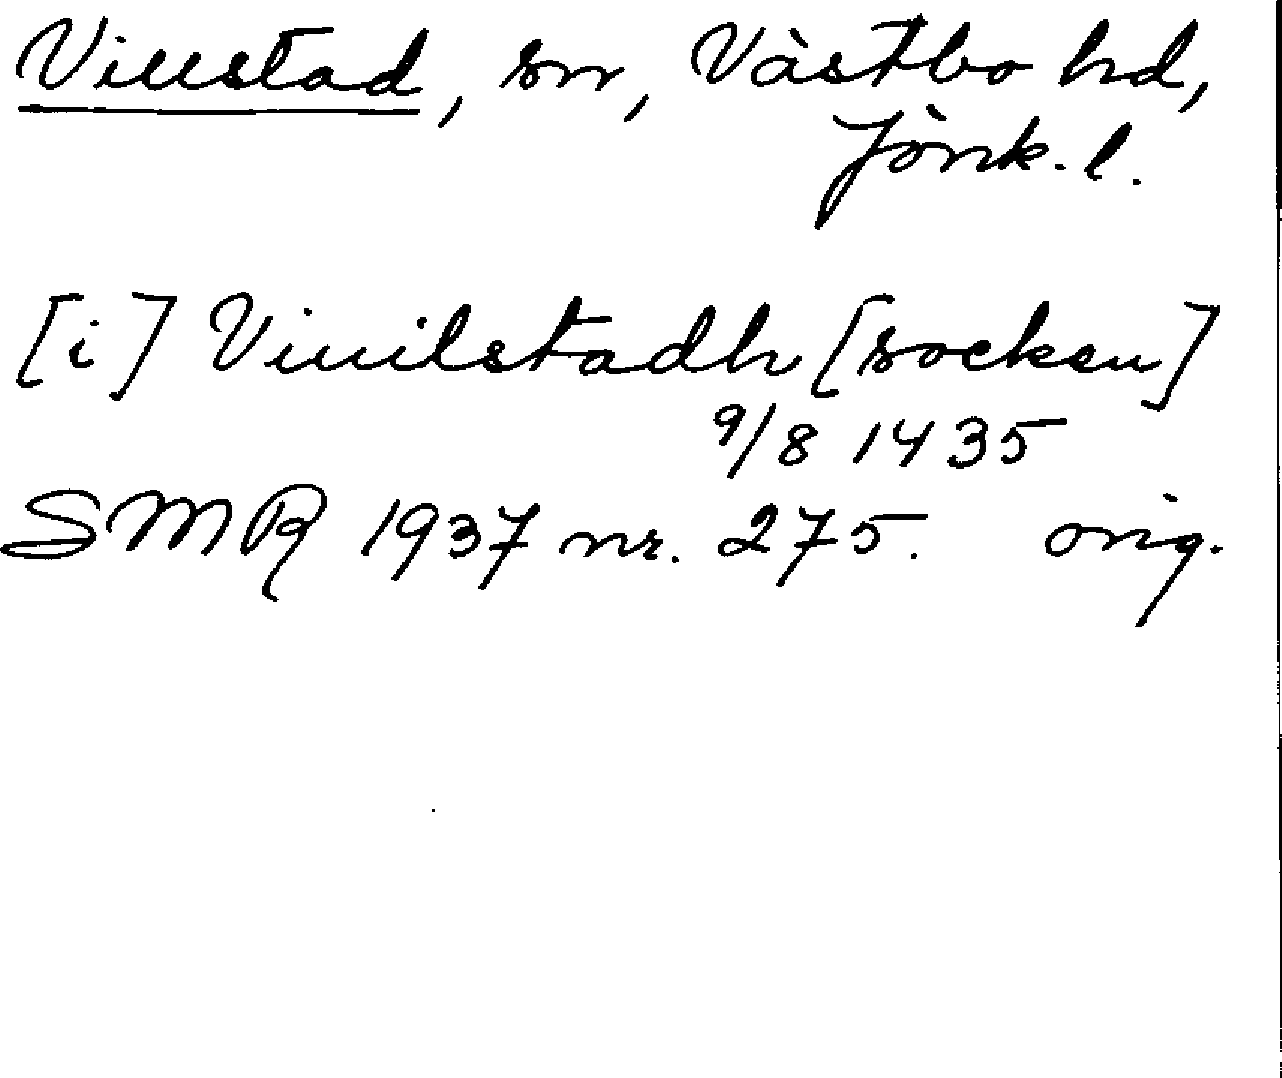 Villstad, sn, Västbo hd,
Jönk. l.
[i] Vinilstadh [socken]
9/8 1435
SMR 1937 nr. 275. orig.